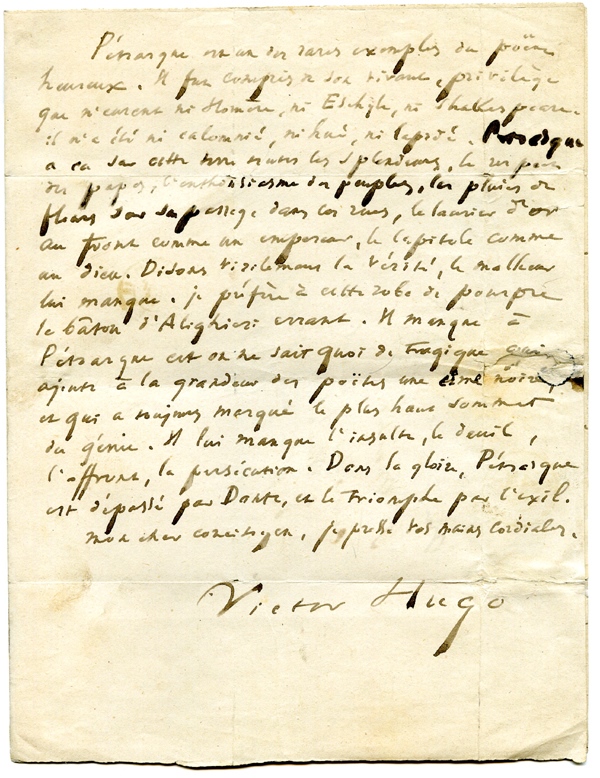 Pétrarque est un des rares exemples du poëte
heureux. Il fut compris de son vivant, privilège
que n'eurent ni Homère, ni Eschyle, ni Shakespeare.
il n'a été ni calomnié, ni hué, ni lapidé. Pétrarque
a eu sur cette terre toutes les splendeurs, le respect
des papes, l'enthousiasme des peuples, les pluies de
fleurs sur son passage dans les rues, le laurier d'or
au front comme un empereur, le Capitole comme
un dieu. Disons virilement la vérité, le malheur
lui manque. je préfère à cette robe de pourpre
le bâton d'Alighieri errant. Il manque à
Pétrarque cet on ne sait quoi de tragique qui
ajoute à la grandeur des poëtes une cime noire
et qui a toujours marqué le plus haut sommet
du génie. Il lui manque l'insulte, le deuil,
l'affront, la persécution. Dans la gloire, Pétrarque
est dépassé par Dante, et le Triomphe par l'exil.
mon cher concitoyen, je presse vos mains cordiales.
Victor Hugo